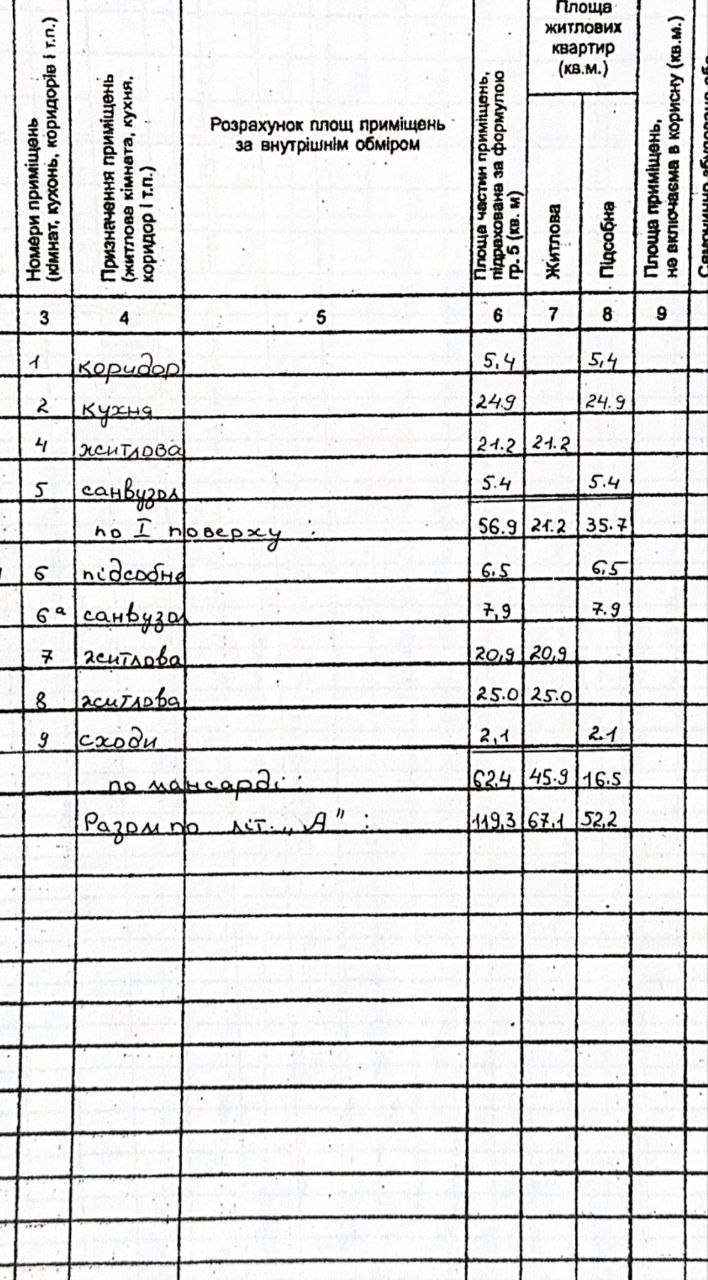 Площа
житлових
квартир
(кв.м.)
Номери приміщень
(кімнат, кухонь, коридорів і т.п.)
Призначення приміщень
(житлове кімната, кухня,
коридор і т.п.)
Розрахунок площ приміщень
за внутрішнім обміром
Площа частин приміщень,
підрахована за формулою
гр. 5 (кв. м)
Житлова
Підсобна
Площа приміщень,
не включаєма в корисну (кв.м.)
3 4 5 6 7 8 9
1 коридор 5,4 5,4
2 кухня 24.9 24.9
4 житлова 21.2 21.2
5 санвузол 5.4 5.4
по I поверху : 56.9 21.2 35.7
6 підсобне 6.5 6.5
6ᵃ санвузол 7,9 7.9
7 житлова 20,9 20,9
8 житлова 25.0 25.0
9 сходи 2,1 2.1
по мансарді : 62.4 45.9 16.5
Разом по літ. „А" : 119,3 67,1 52,2